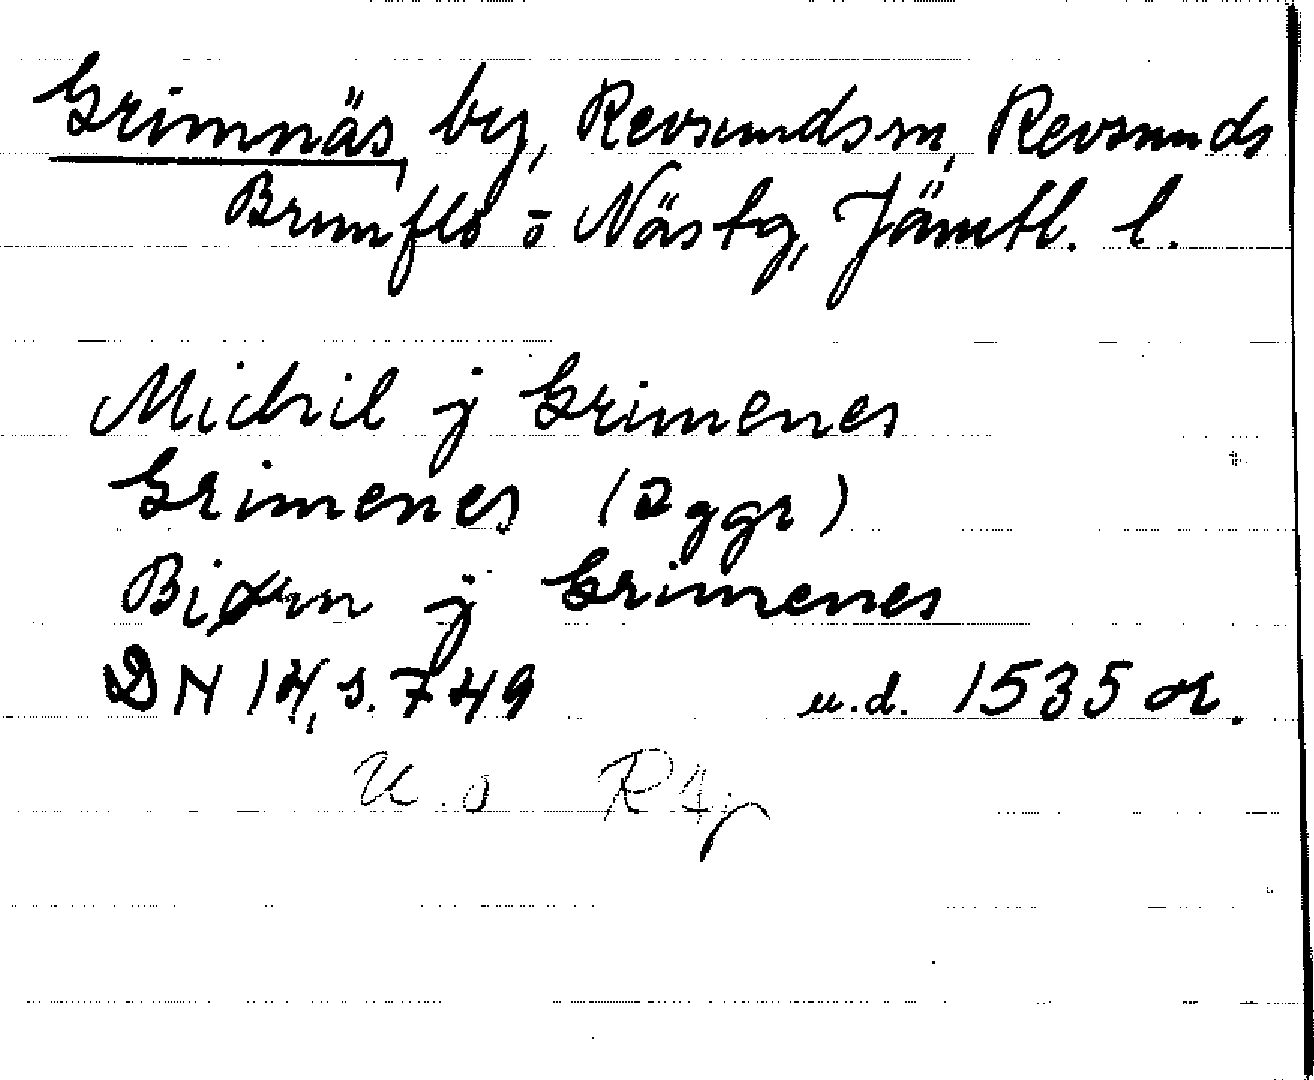 Grimnäs, by, Revsunds sn, Revsunds
Brunflo o Näs tg, Jämtl. l.
Michil j Grimenes
Grimenes (2 ggr)
Biørn j Grimenes
DN 14, s. 749 u.d. 1535 or.
U.o RAp